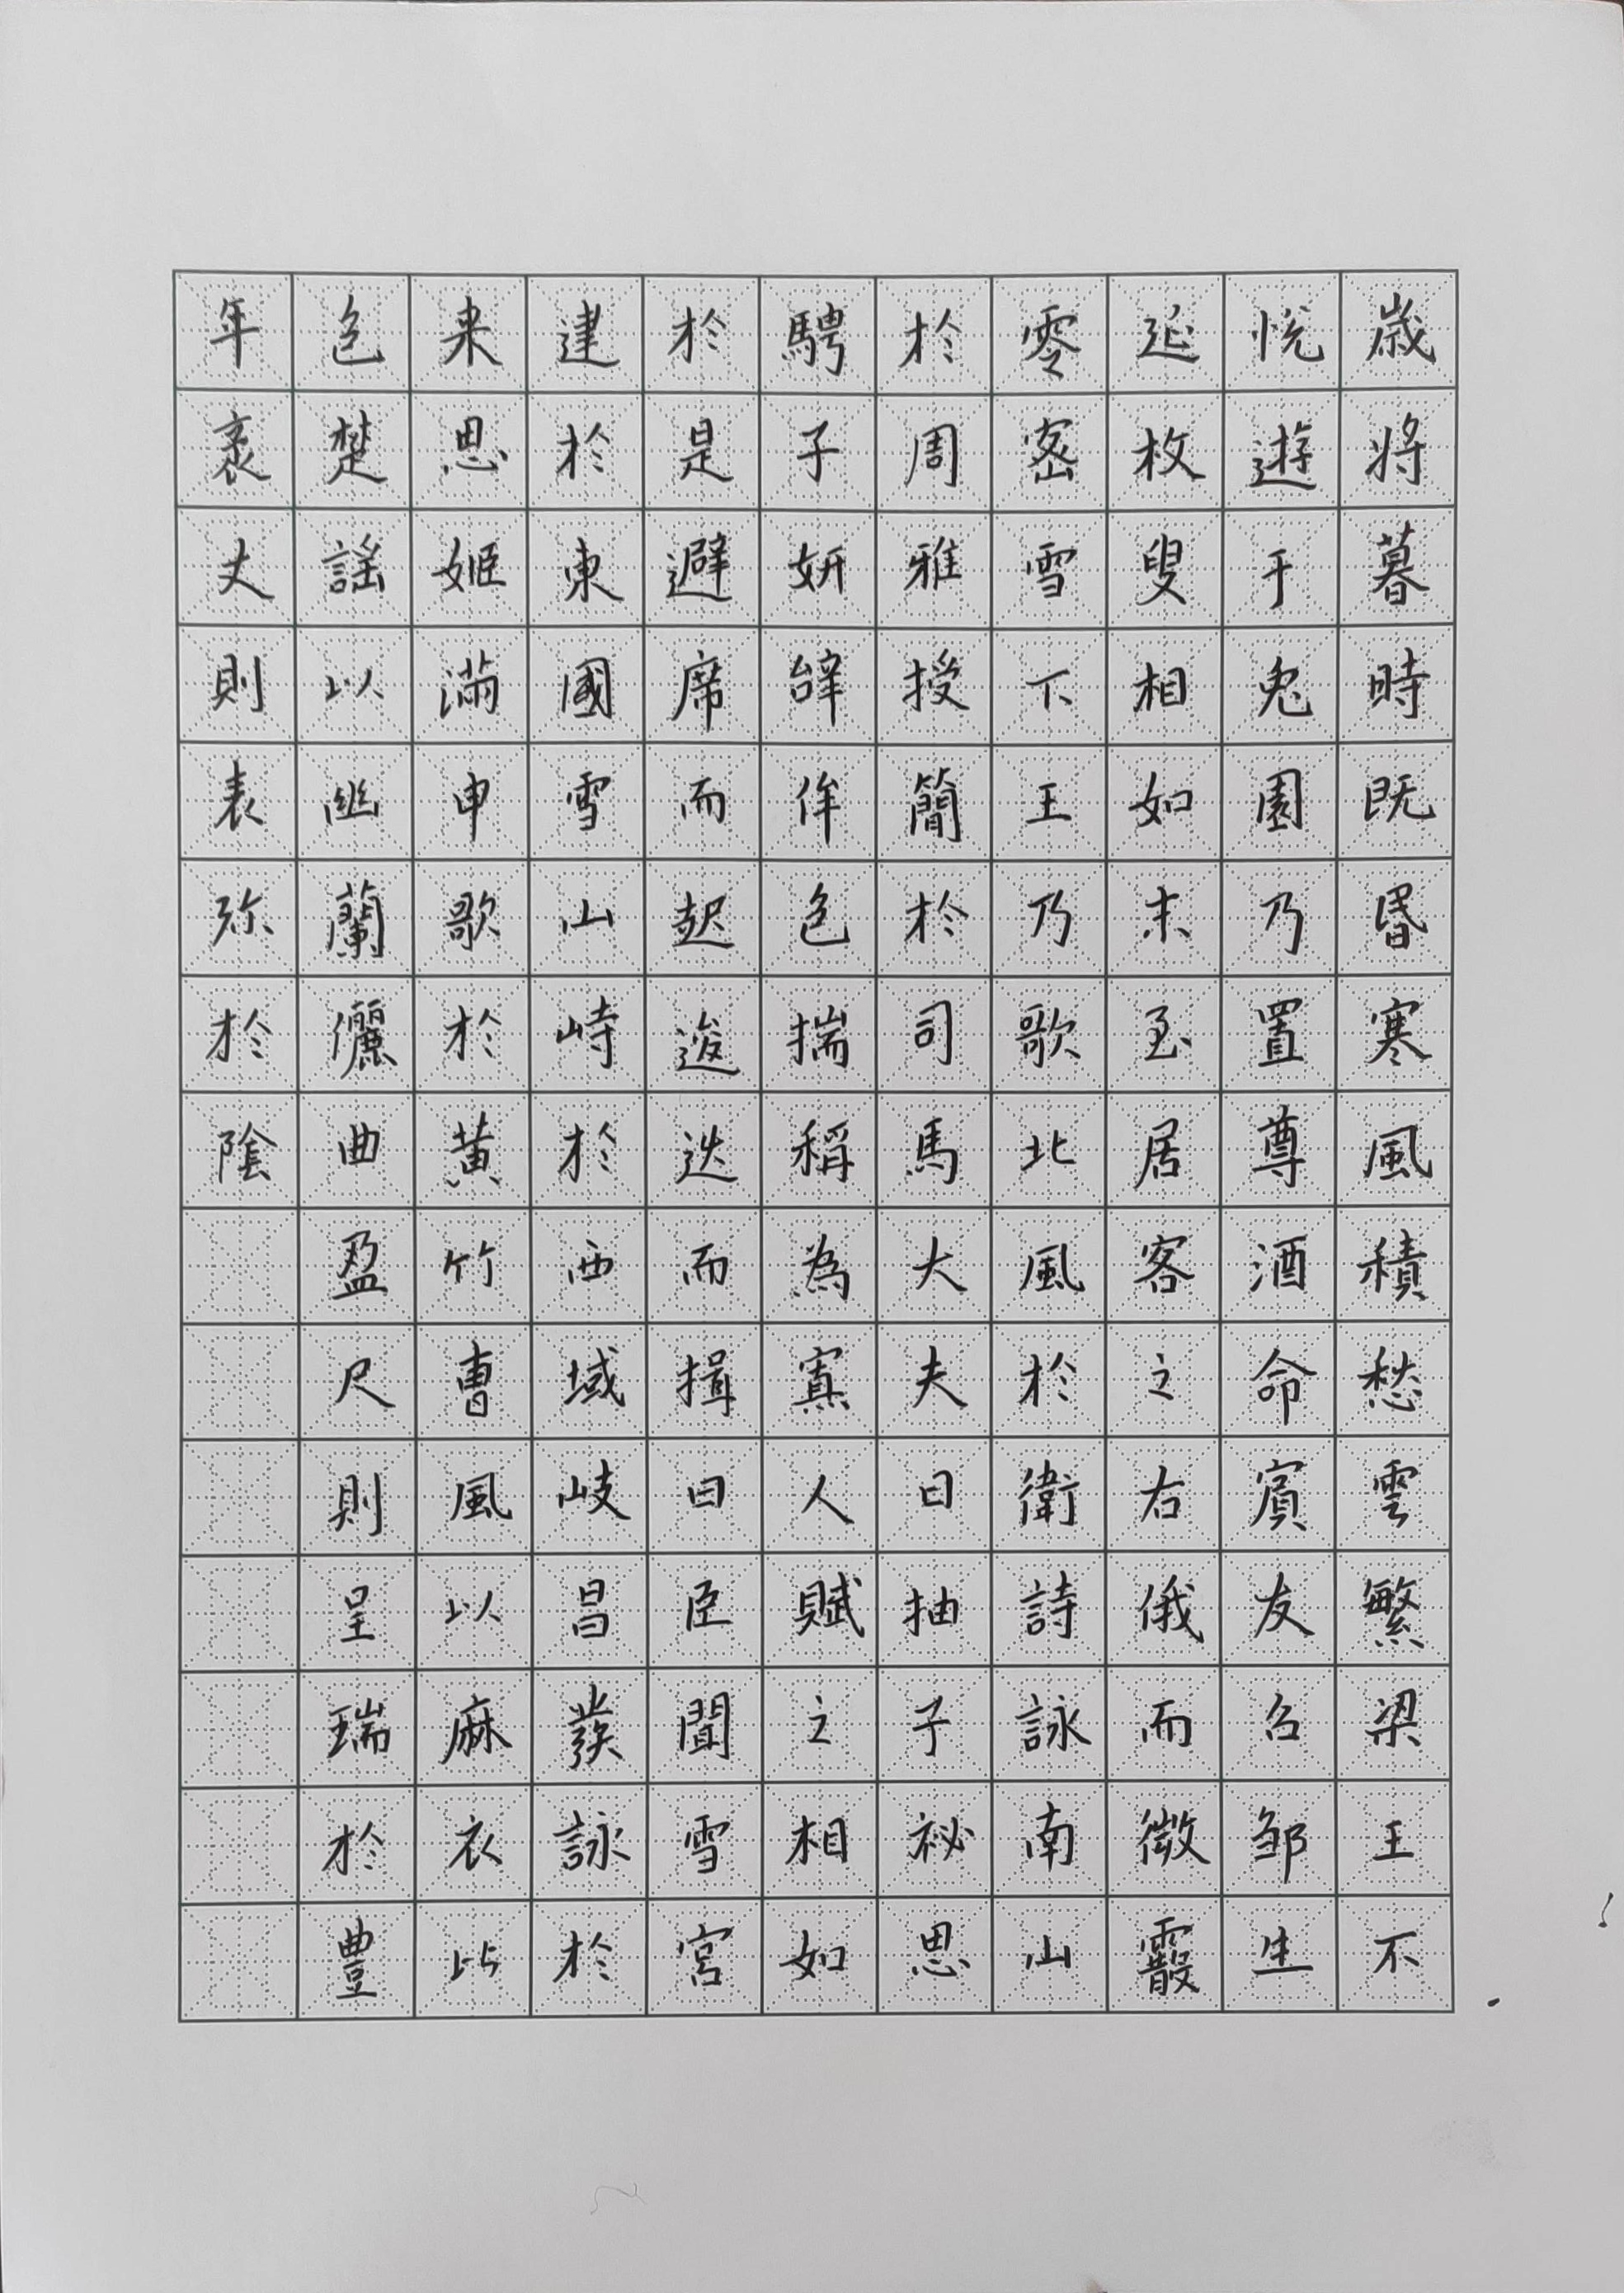 歲將暮時既昏寒風積愁雲繁梁王不
悅遊于兔園乃置尊酒命賓友召邹生
延枚叟相如末至居客之右俄而微霰
零密雪下王乃歌北風於衛詩詠南山
於周雅授簡於司馬大夫曰抽子祕思
騁子妍辭侔色揣稱為寡人賦之相如
於是避席而起逡迭而揖曰臣聞雪宮
建於東國雪山峙於西域岐昌發詠於
来思姬滿申歌於黃竹曹風以麻衣比
色楚謠以幽蘭儷曲盈尺則呈瑞於豐
年袤丈則表沴於陰